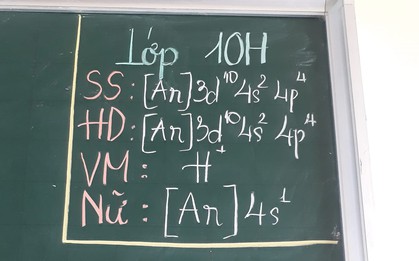 Lớp 10H
SS: [Ar]3d¹⁰4s² 4p⁴
HD: [Ar]3d¹⁰4s² 4p⁴
VM: H⁺
Nữ: [Ar]4s¹